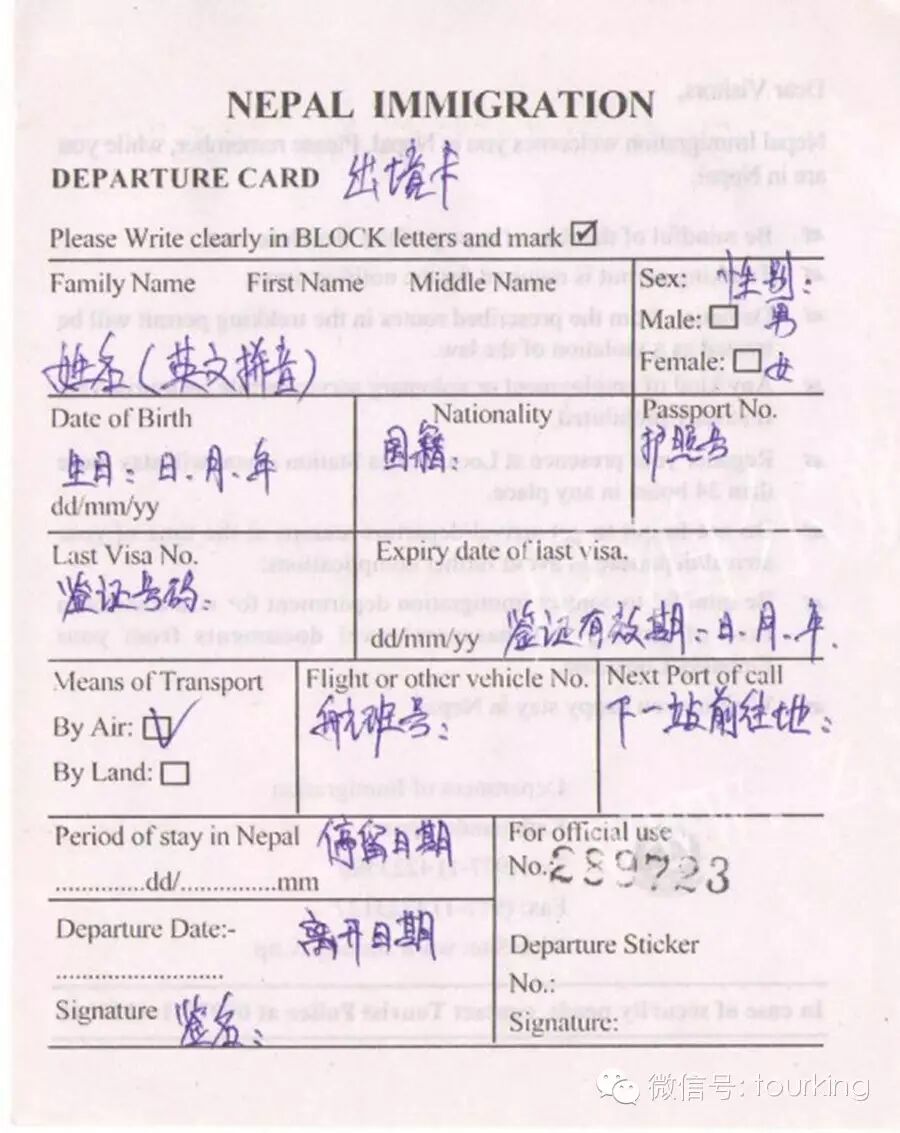 NEPAL IMMIGRATION
DEPARTURE CARD 出境卡
Please Write clearly in BLOCK letters and mark ☑
Family Name First Name Middle Name
姓名(英文拼音)
Sex: 性别:
Male: □ 男
Female: □ 女
Date of Birth
生日:日.月.年
dd/mm/yy
Nationality
国籍
Passport No.
护照号
Last Visa No.
签证号码:
Expiry date of last visa.
dd/mm/yy 签证有效期:日.月.年.
Means of Transport
By Air: ☑
By Land: □
Flight or other vehicle No.
航班号:
Next Port of call
下一站前往地:
Period of stay in Nepal 停留日期
.............dd/..............mm
Departure Date:- 离开日期
........................
Signature 签名:
For official use
No.:289723
Departure Sticker
No.:
Signature:
微信号: tourking